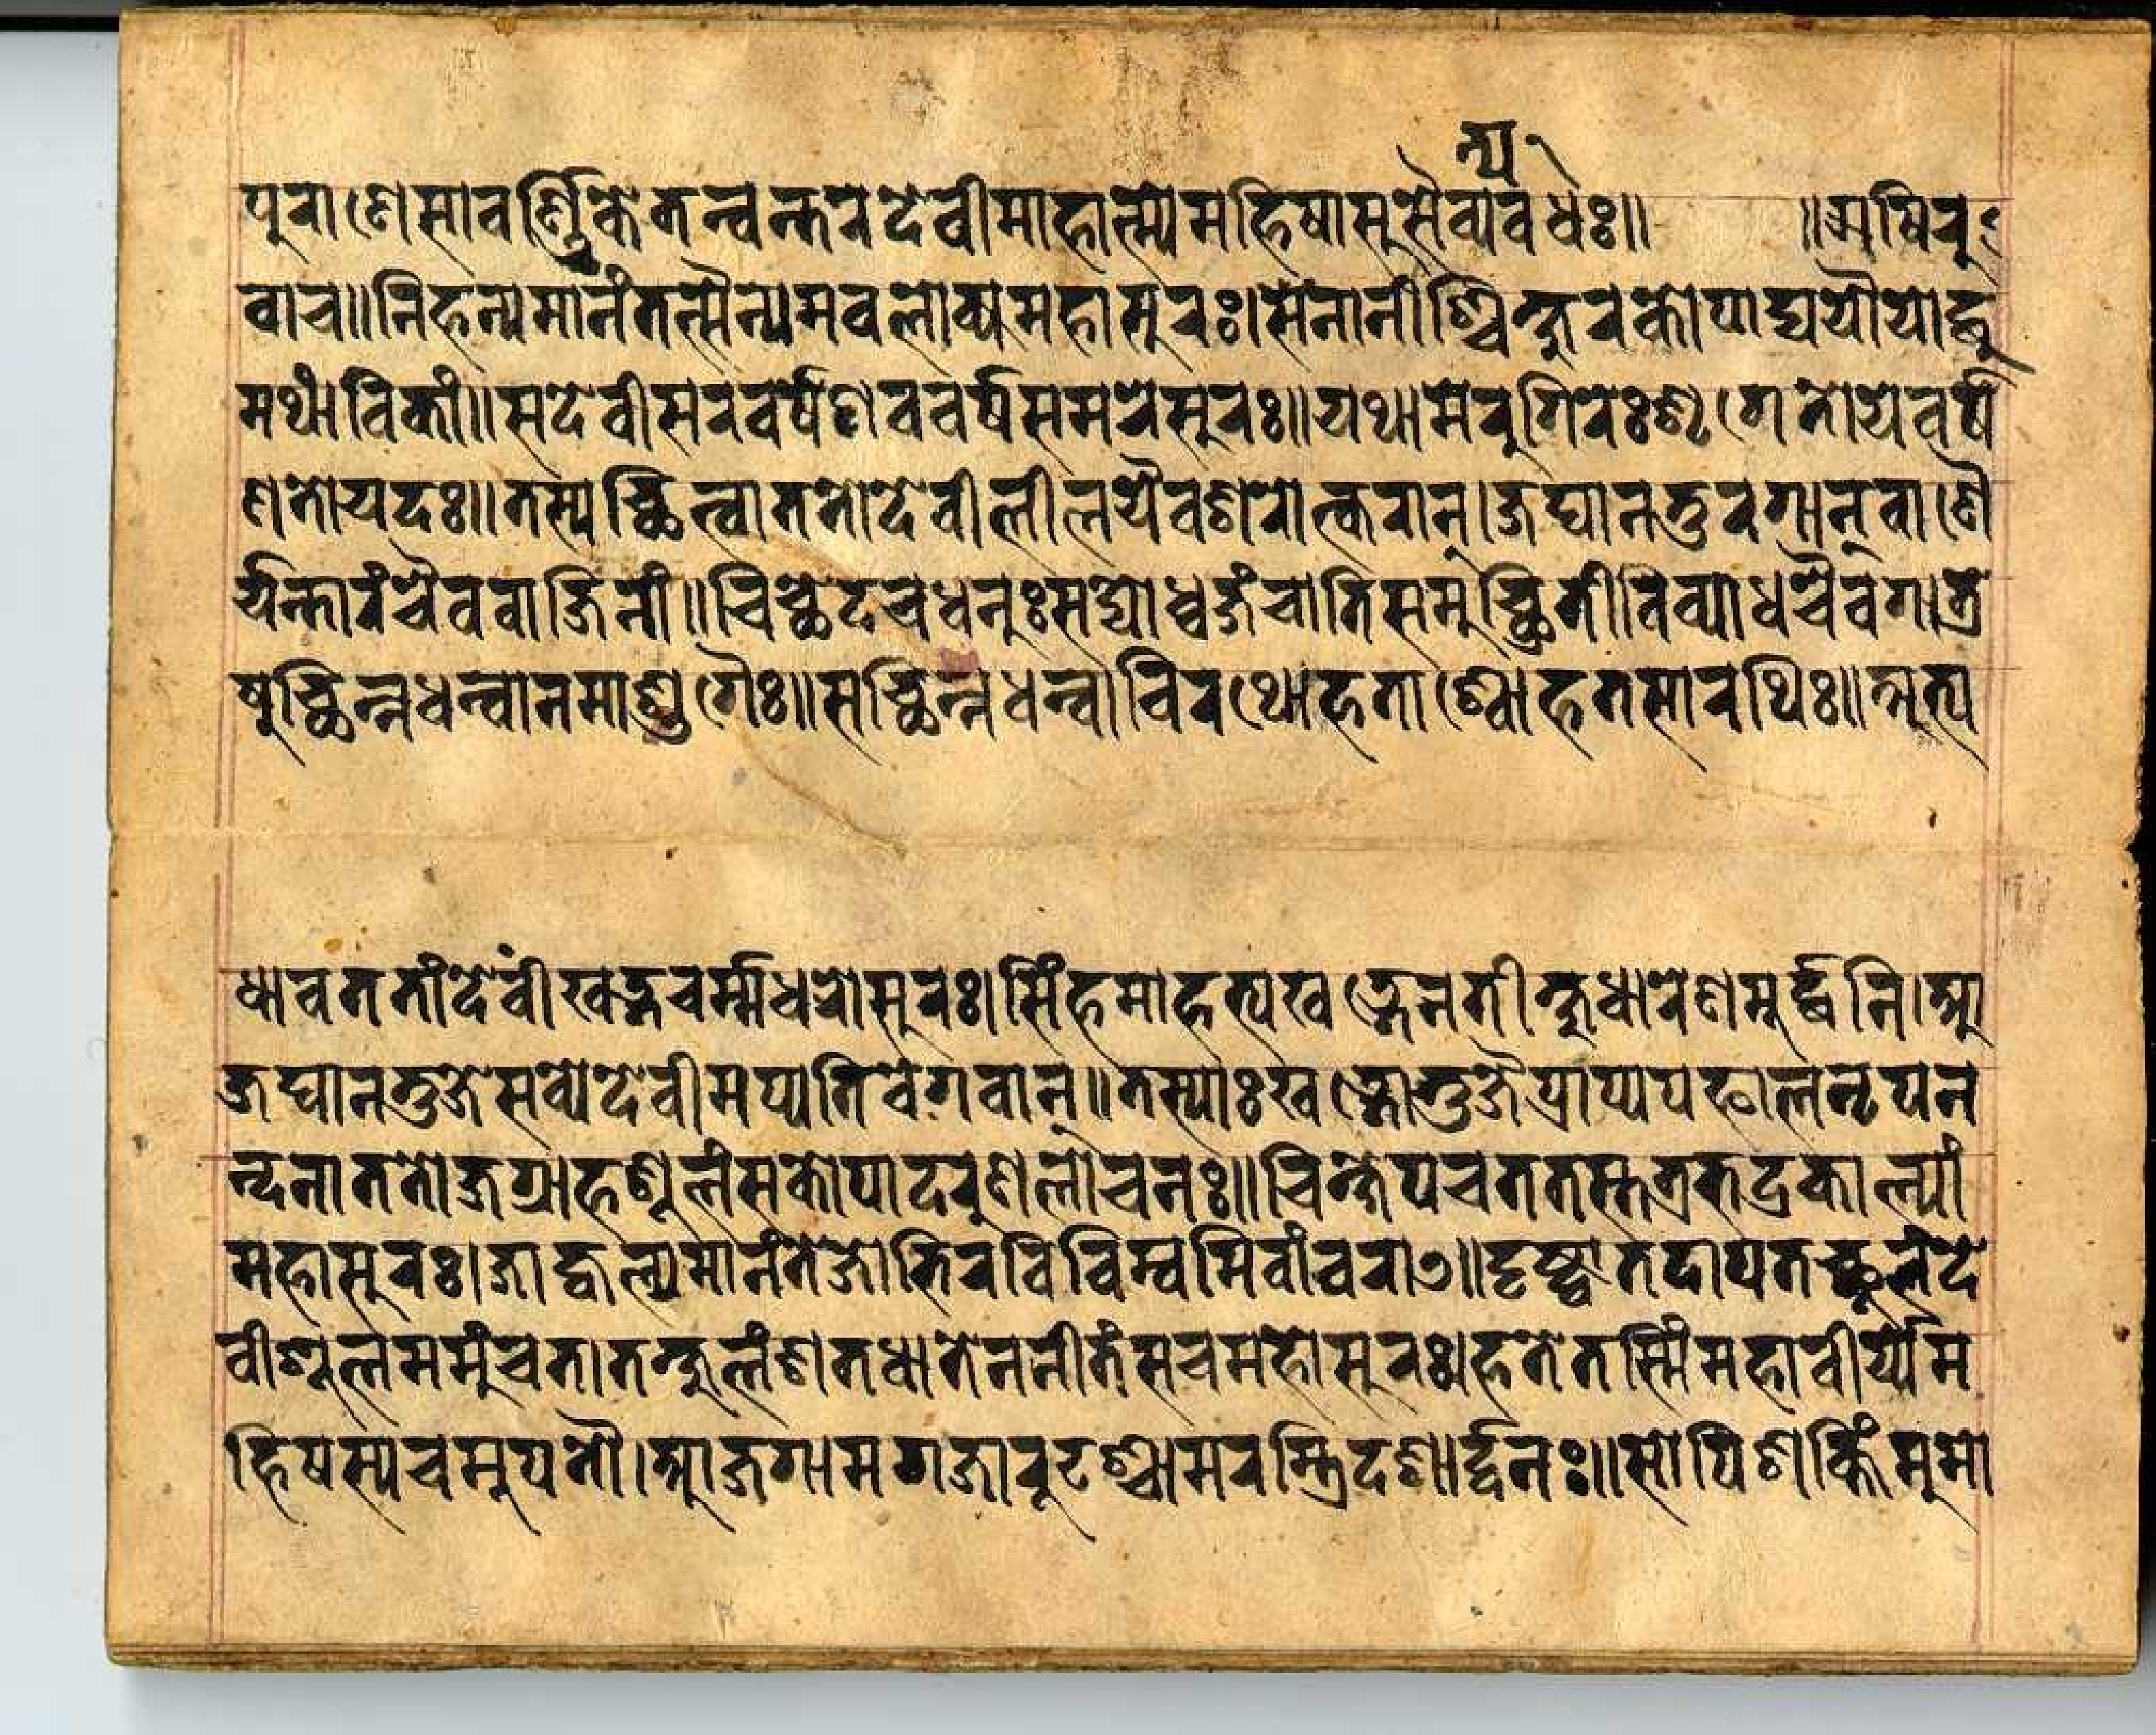 न्य
पुराणेसावर्णिकेमन्वन्तरदेवीमाहात्म्येमहिषासुसैव्यवधेः॥ ॥ऋषिरु
वाच॥निहन्यमानंतत्सैन्यमवलोक्यमहासुरः।सेनानीश्चिक्षुरकोपाद्ययौयोद्धु
मथांविकां॥सदेवीसरवर्षेणववर्षसमरेसुरः॥यथामेरुगिरेःशृगेतोयेवर्षे
णतोयदः॥तस्यच्छित्वाततोदेवीलीलयैवशरोत्करान्।जघानतुरगान्वाणै
र्यन्तारंचैववाजिनां॥चिच्छेदचधनुःसद्योध्वजंचातिसमुच्छ्रितीविव्याधचैवगात्रे
षुच्छिन्नधन्वानमाशुगैः॥सच्छिन्नधन्वाविरथोहताश्वोहतसारथिः॥अभ्य
धावततांदेवींखड्गचर्म्मधरोसुरः।सिंहमाहत्यखड्गेनतीक्ष्णधारेणमूर्द्धनि।आ
जघानभुजेसव्येदेवीमप्यतिवेगवान्॥तस्याःखड्गोभुजंप्राप्यपफालनृपन
न्दनाततोजग्राहशूलंसकोपादरुणलोचनः॥चिक्षेपचततस्तत्रभद्रकाल्यां
महासुरः।जाज्वल्यमानंतेजोभिरविविम्वमिवांवरात्॥दृष्ट्वातदापतच्छूलंदे
वीशूलममुंचत।तच्छूलंशतधातेननीतंसचमहोसुरः।हतेतस्मिंमहावीर्य्येम
हिषस्यचमूपतौ।आजगामगजारूढश्चामरस्त्रिदशार्द्दनः॥सोपिशक्तिंमुमो